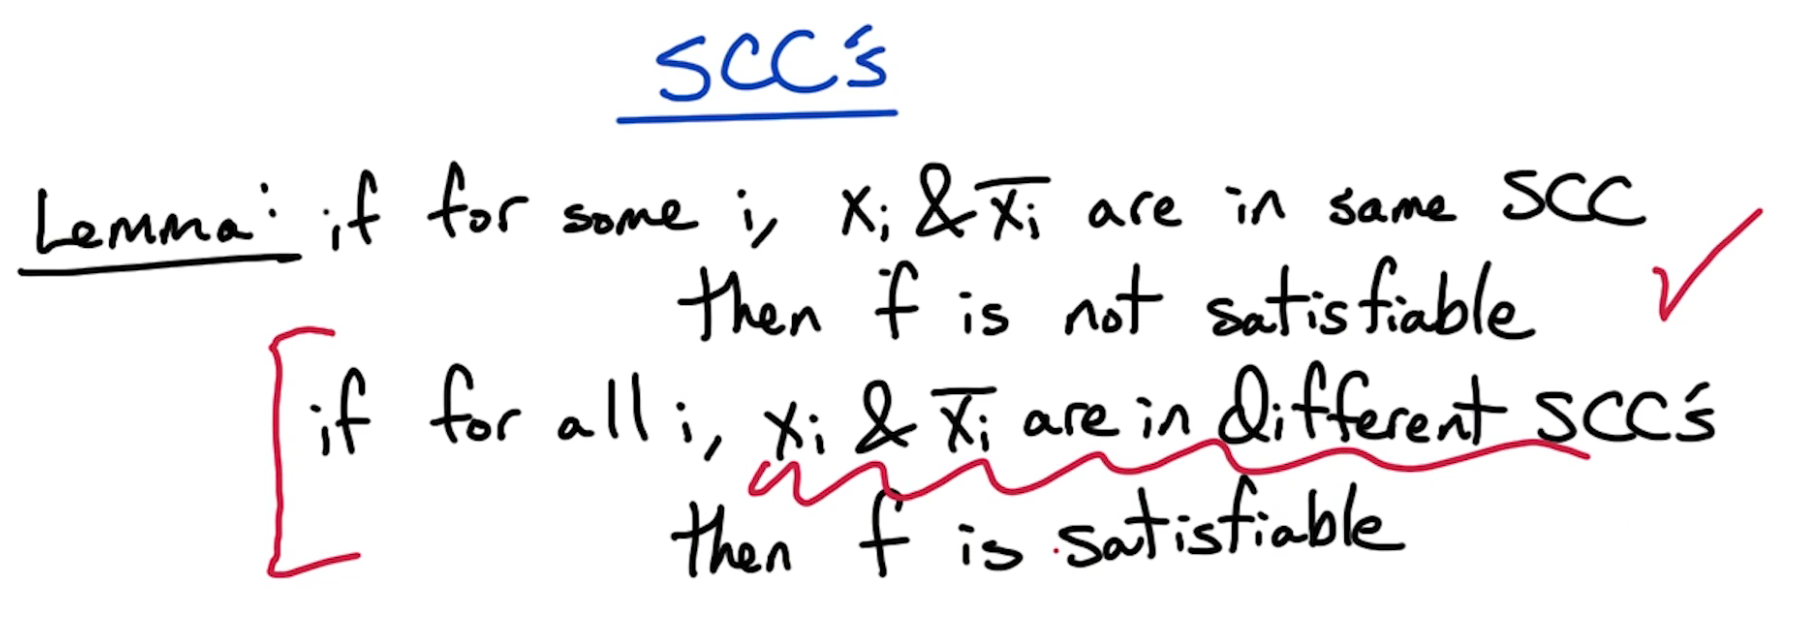 SCC's
Lemma: if for some i, xᵢ & x̅ᵢ are in same SCC
then f is not satisfiable
if for all i, xᵢ & x̅ᵢ are in different SCC's
then f is satisfiable